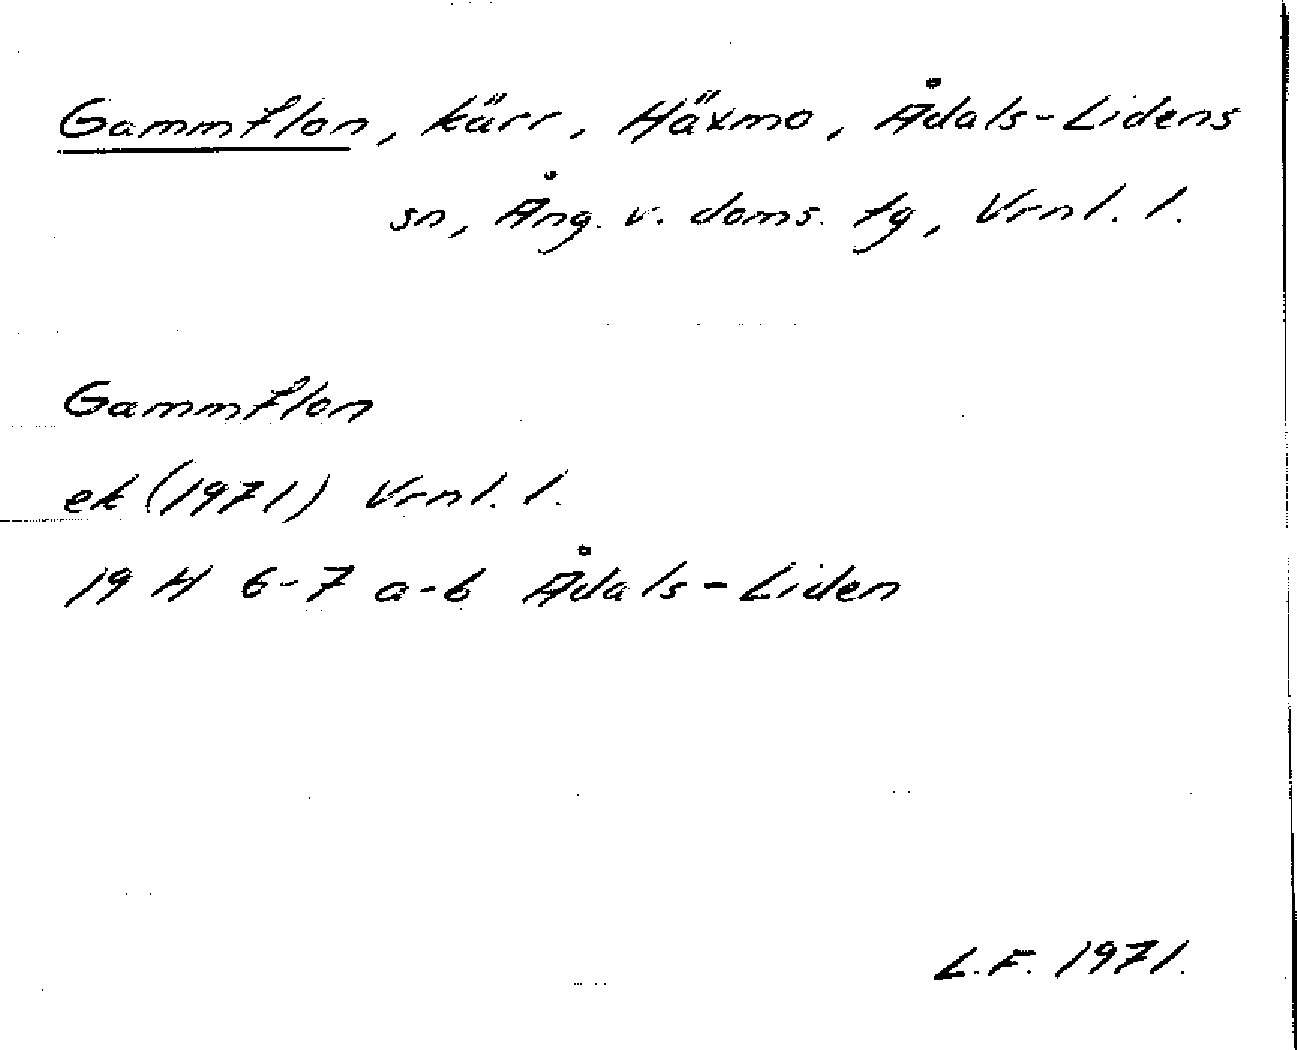 Gammflon, kärr, Häxmo, Ådals-Lidens
sn, Ång. v. doms. tg, Vrnl. l.
Gammflon
ek (1971) Vrnl. l.
19 H 6-7 a-b Ådals-Liden
L.F. 1971.